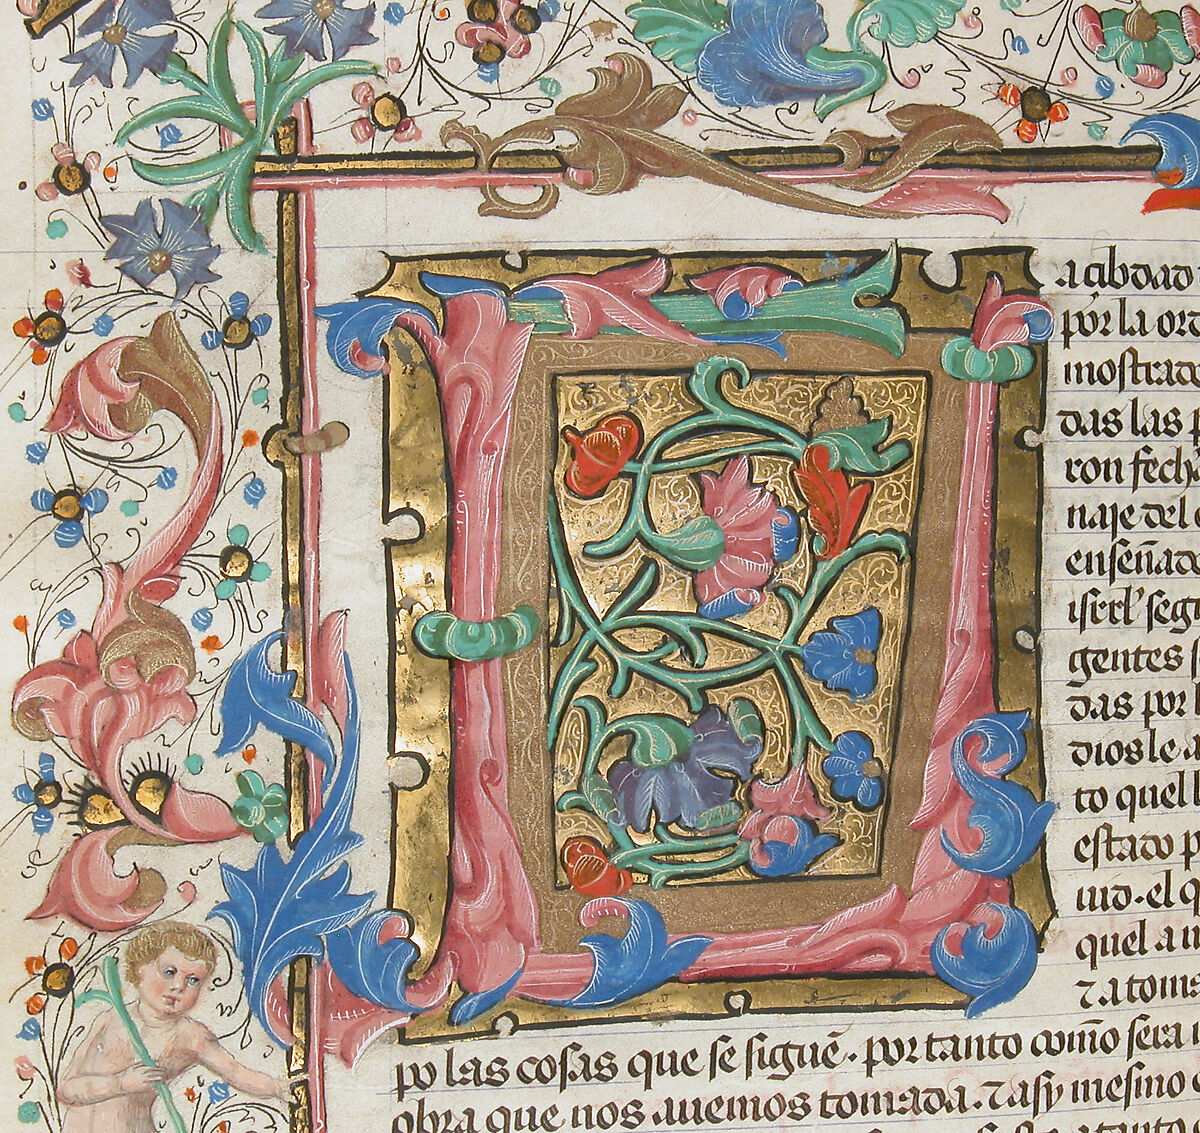 a çibdad
por la ord
mostrado
das las p
ron fech
naje del
enseñado
isrrl' seg
gentes s
das por
dios le a
to quel l
estado p
uid · el q
quel a ui
⁊ a toma
po las cosas que se siguē · por tanto com̄o sera
obra que nos auemos tomada · ⁊ asy mesmo